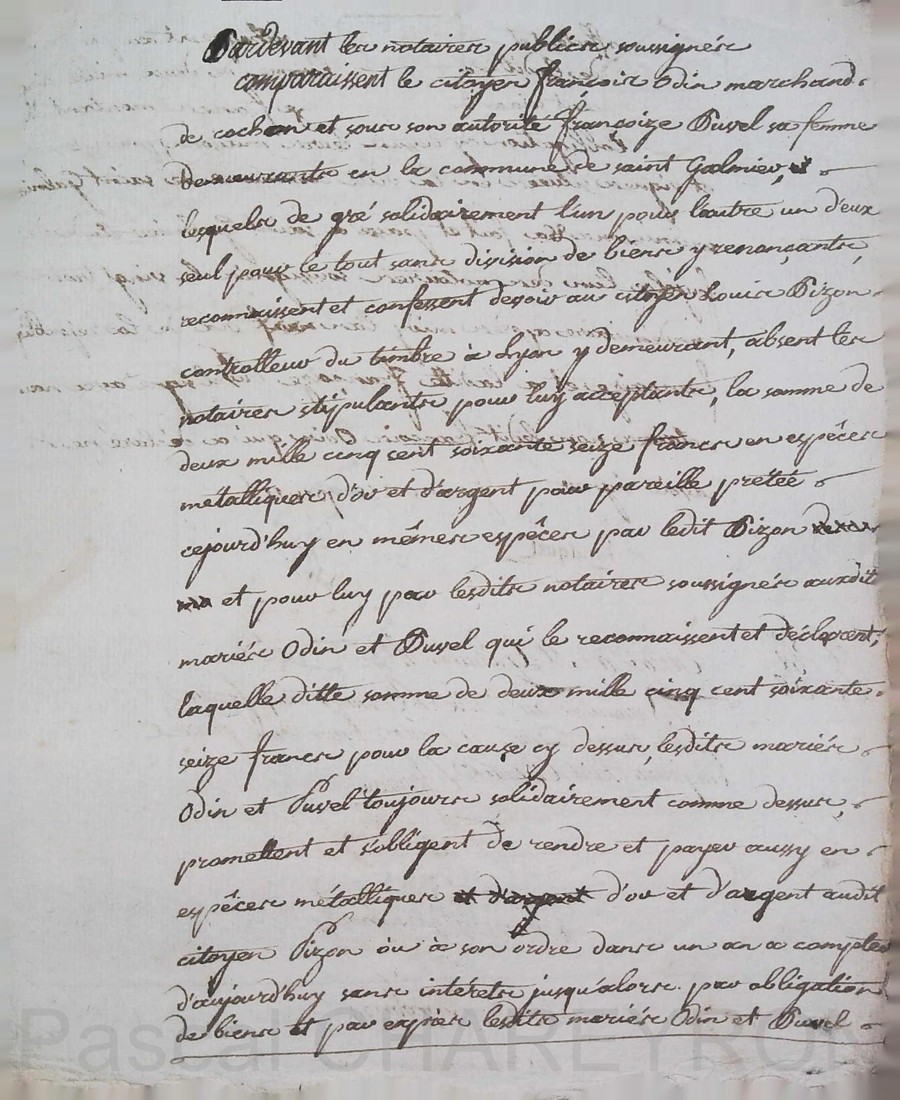 Pardevant les notaires publics soussignés
comparaissent le citoyen françois Odin marchand
de cochon et sous son autorité françoize Puvel sa femme
Demeurants en la commune de saint Galmier,
lesquels de gré solidairement l'un pour l'autre un d'eux
seul pour le tout sans division de biens y renonçants,
reconnaissent et confessent devoir au citoyen Louis Pizon
controlleur du timbre à Lyon y demeurant, absent les
notaires stipulants pour luy acceptants, la somme de
deux mille cinq cent soixante seize francs en espêces
métalliques d'or et d'argent pour pareille pretéé
cejourd'huy en mêmes espêces par ledit Pizon
et pour luy par lesdits notaires soussignés auxdit
mariés Odin et Puvel qui le reconnaissent et déclarent;
laquelle ditte somme de deux mille cinq cent soixante
seize francs pour la cause cy dessus, lesdits mariés
Odin et Puvel toujours solidairement comme dessus,
promettent et s'obligent de rendre et payer aussy en
espêces métalliques et d'argent d'or et d'argent audit
citoyen Pizon òu à son ordre dans un an a compter
d'aujourd'huy sans intérets jusqu'alors. par obligation
de biens et par exprès lesdits mariés Odin et Puvel
Pascal CHAREYRON